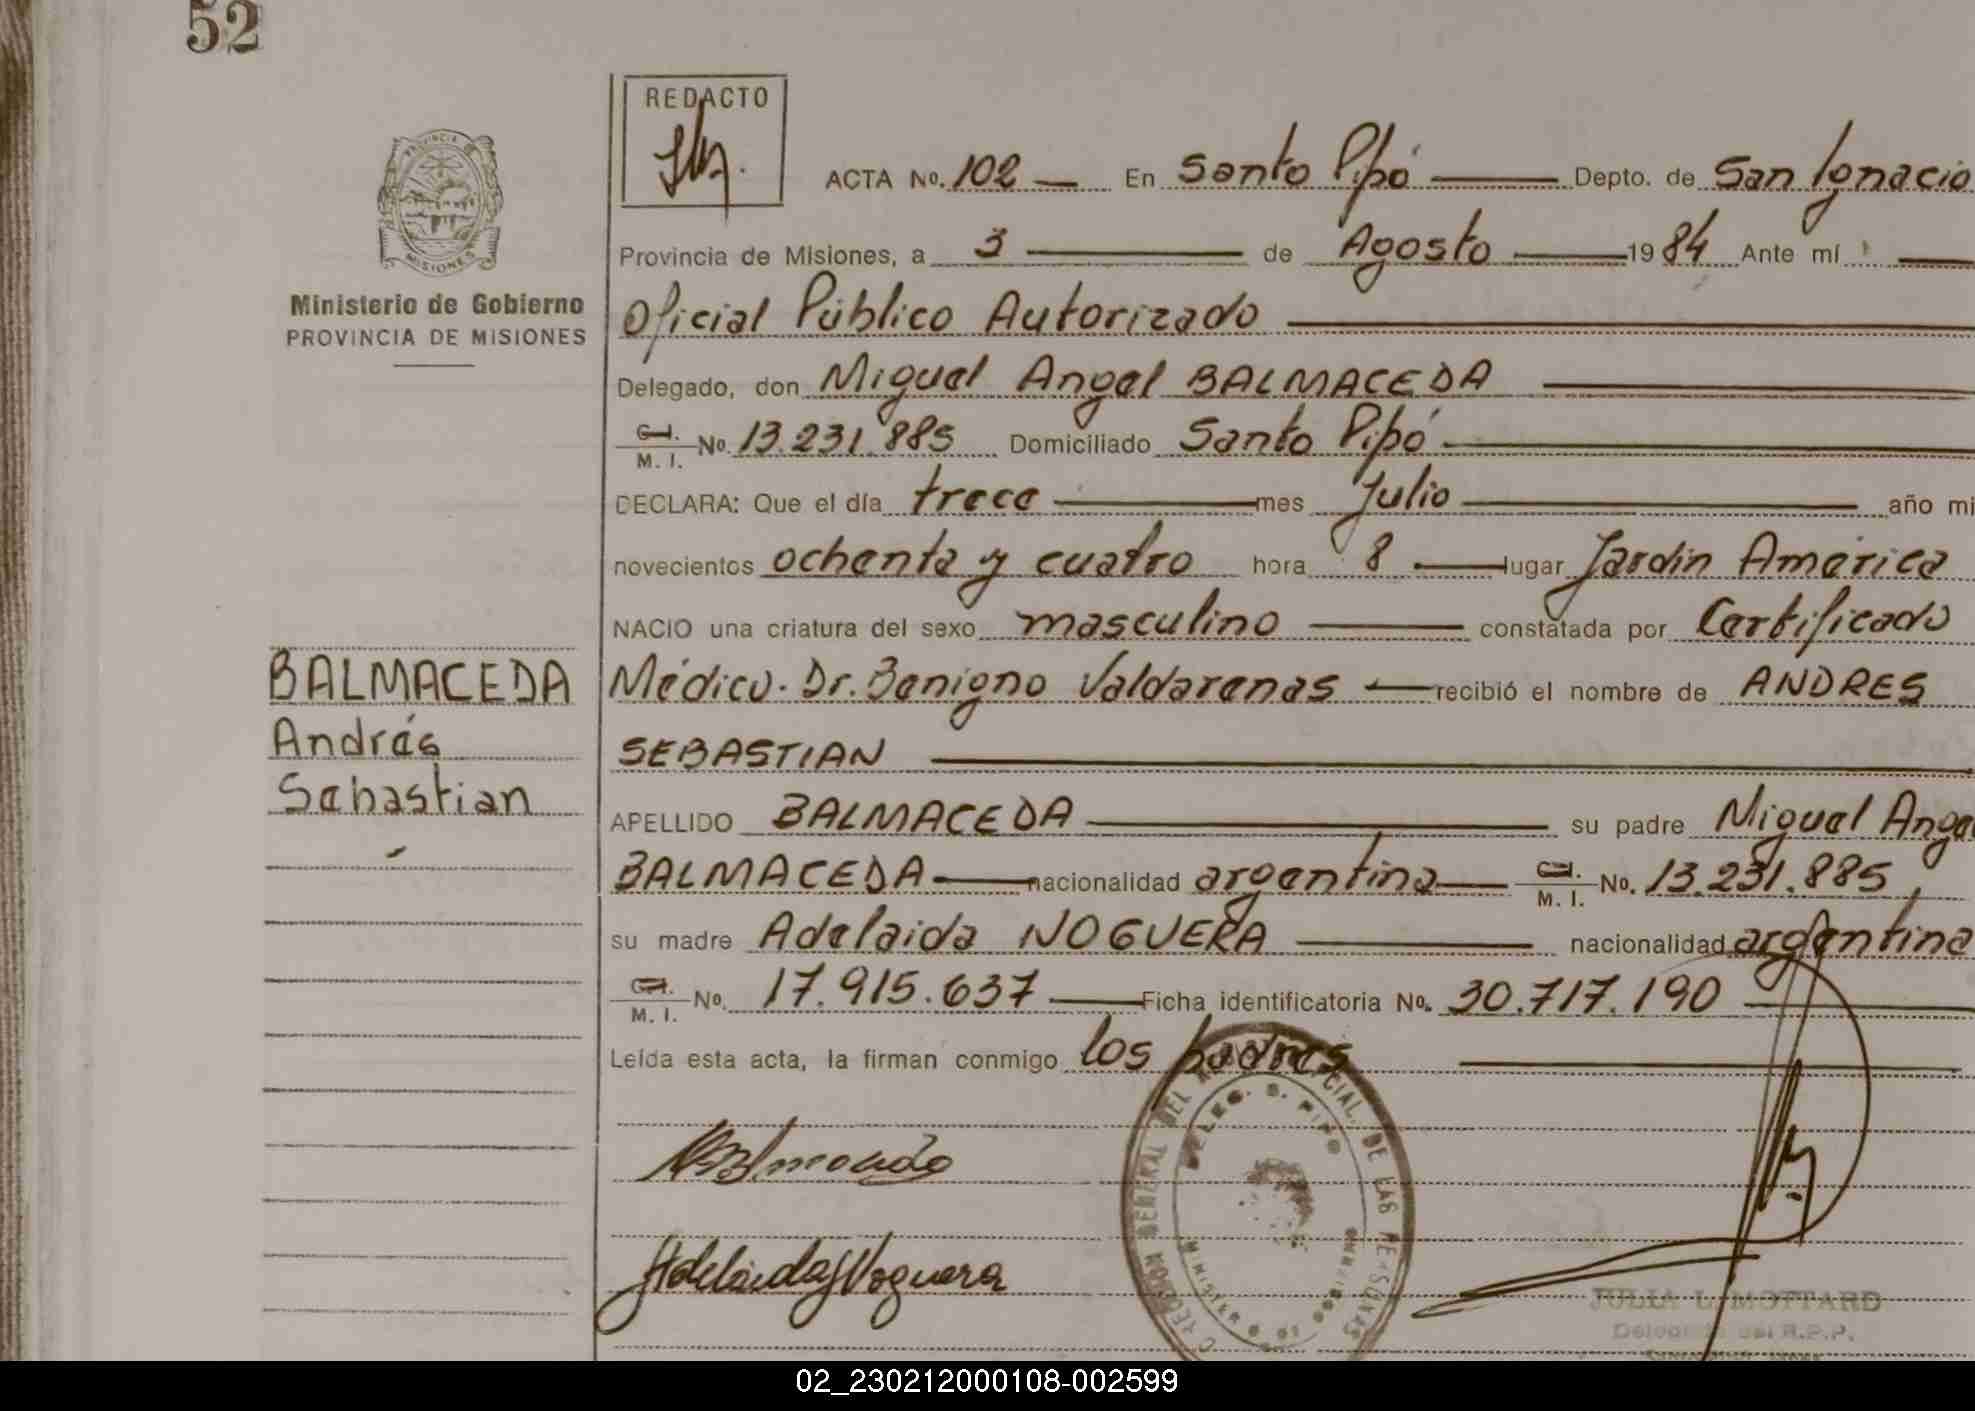 52
REDACTO
ACTA No. 102 En Santo Pipó Depto. de San Ignacio
Provincia de Misiones, a 3 de Agosto 1984 Ante mí
Oficial Público Autorizado
Delegado, don Miguel Angel BALMACEDA
C.I. M. I. No. 13.231.885 Domiciliado Santo Pipó
DECLARA: Que el día trece mes Julio año mi
novecientos ochenta y cuatro hora 8 lugar Jardín América
NACIO una criatura del sexo masculino constatada por Certificado
Médico. Dr. Benigno Valdarenas recibió el nombre de ANDRES
SEBASTIAN
APELLIDO BALMACEDA su padre Miguel Angel
BALMACEDA nacionalidad argentina C.I. M. I. No. 13.231.885,
su madre Adelaida NOGUERA nacionalidad argentina
C.I. M. I. No. 17.915.637 Ficha identificatoria No. 30.717.190
Leída esta acta, la firman conmigo los padres
PROVINCIA DE
MISIONES
Ministerio de Gobierno
PROVINCIA DE MISIONES
BALMACEDA
Andrés
Sebastian
Balmaceda
Adelaida Noguera
DELEG. S. PIPO
JULIA L. MOTTARD
Delegada del R.P.P.
02_230212000108-002599